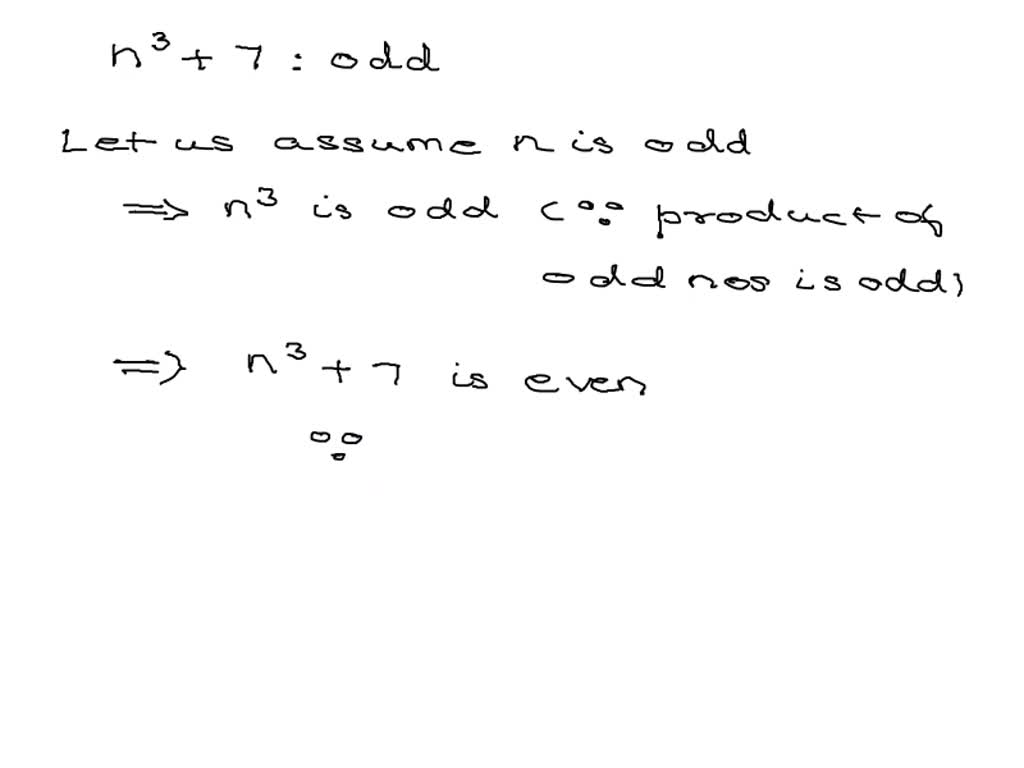 n³ + 7 : odd
Let us assume n is odd
⇒ n³ is odd (∵ product of
odd nos is odd)
⇒ n³ + 7 is even
∵